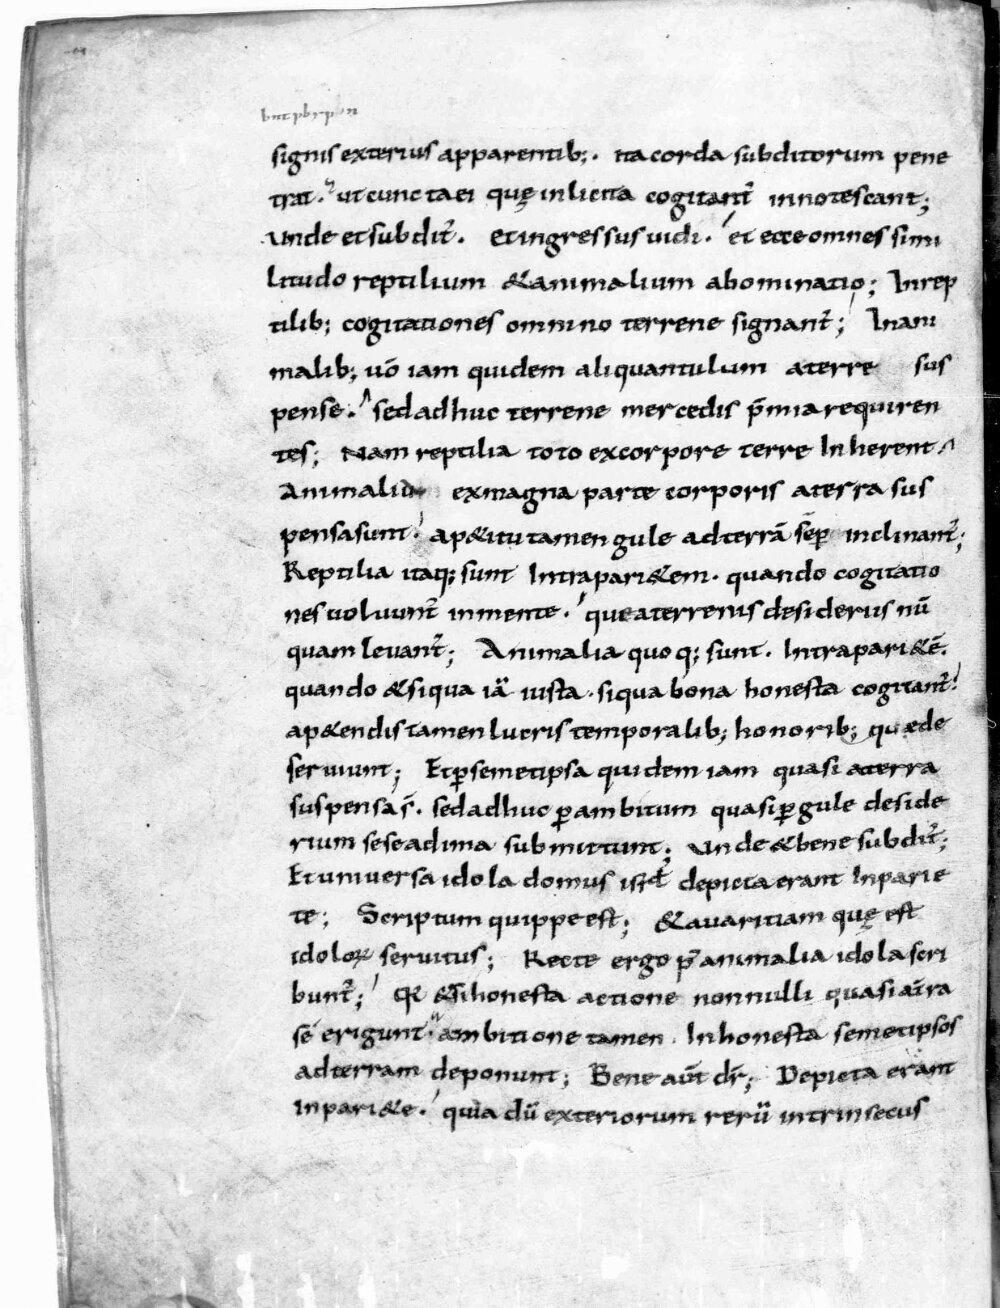 signis exterius apparentib;. ita corda subditorum pene
trat. ut cuncta ei quę inlicita cogitant̃ innotescant;
Unde et subdit̃. Et ingressus uidi. et ecce omnes simi
litudo reptilium & animalium abominatio; In rep
tilib; cogitationes omnino terrene signant̃; In ani
malib; uō iam quidem aliquantulum a terre sus
pense. sed adhuc terrene mercedis p̄mia requiren
tes; Nam reptilia toto ex corpore terre Inherent
Animalia ex magna parte corporis a terra sus
pensa sunt. ap&itu tamen gule ad terrā sēp inclinant̃;
Reptilia itaq; sunt Intra pari&em. quando cogitatio
nes uoluunt̃ in mente. que a terrenis desideriis nū
quam levant̃; Animalia quoq; sunt. Intra pari&ē.
quando & siqua iā iusta. siqua bona honesta cogitant̃.
ap&endis tamen lucris temporalib; honorib; quæ de
seruiunt; Et ꝑ semetipsa quidem iam quasi a terra
suspensa s̄. sed adhuc ꝑ ambitum quasi ꝑ gule deside
rium sese ad ima submittunt; Unde & bene subdit̃;
Et universa idola domus isrł depicta erant In parie
te; Scriptum quippe est; & avaritiam quę est
idoloꝝ servitus; Recte ergo p̄ animalia idola scri
bunt̃; Qꝛ & si honesta actione nonnulli quasi a t̄ra
sē erigunt. ambitione tamen. Inhonesta semetipsos
ad terram deponunt; Bene aūt dr̄; Depicta erant
in pari&e. quia dū exteriorum rerū intrinsecus